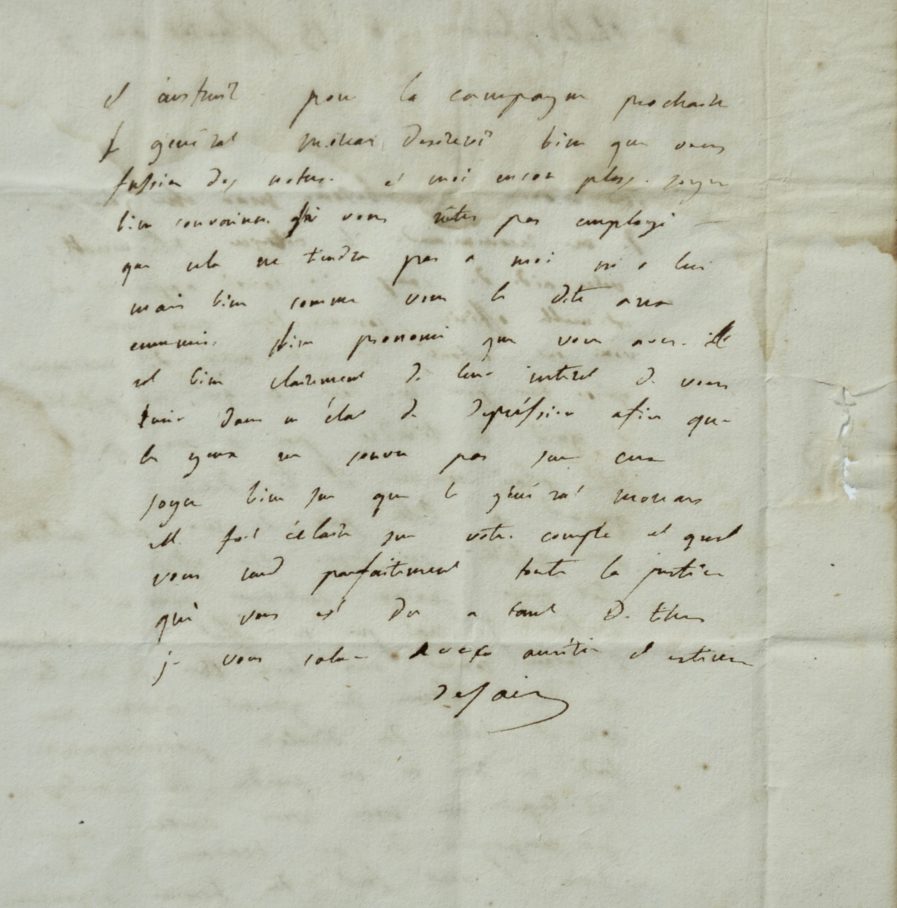 et instruit pour la campagne prochain
le général moreau desireroit bien que vous
fussiez des notres. et moi encor plus. soyez
bien convaincu que si vous n'êtes pas employé
que cela ne tiendra pas a moi ni a lui
mais bien comme vous le dite aux
ennemis bien prononcé que vous avez. il
est bien clairement de leur interet de vous
tenir dans un état de depression afin que
les yeux ne s'ouvre pas sur eux
soyez bien sur que le général moreau
est fort éclairé sur votre compte et quil
vous rend parfaitement toute la justice
qui vous est due a tant de titres
je vous salue avec amitié et estime
desaix